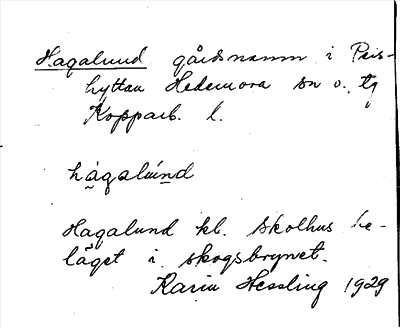 Hagalund gårdsnamn i Pers-
hyttan Hedemora sn o. tg
Kopparb. l.
hagalund
Hagalund kl. skolhus be-
läget i skogsbrynet.
Karin Hessling 1929